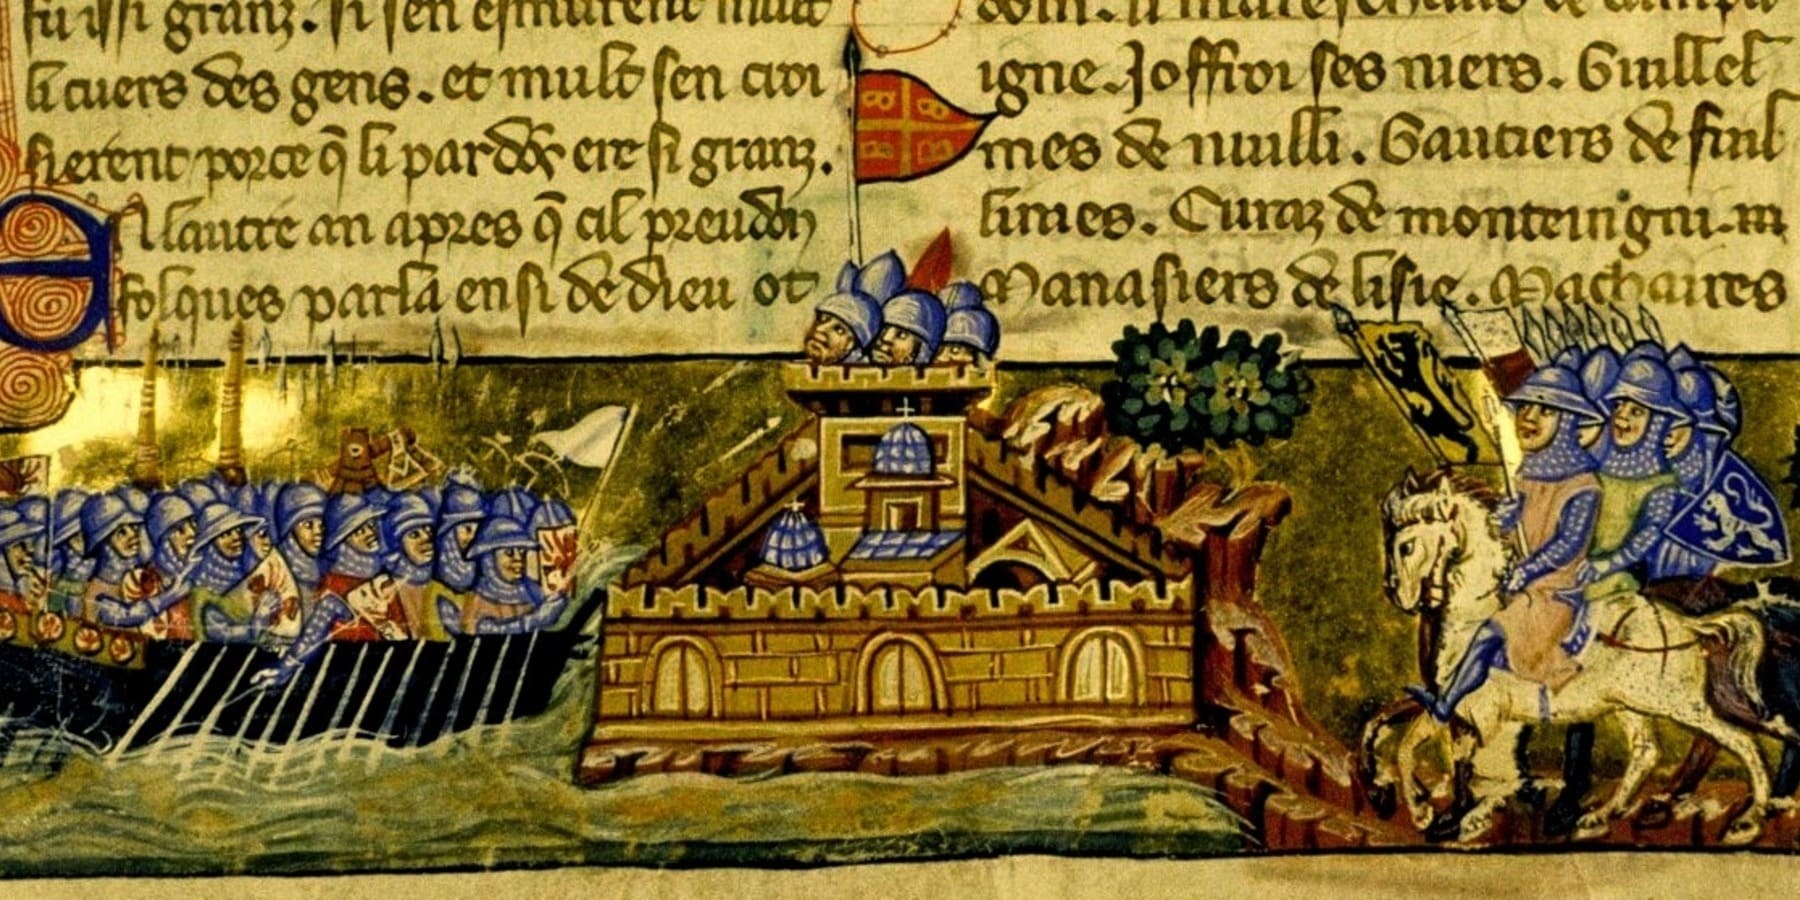 fu issi granz. si sen esmurent mult
li cuers des gens. et mult sen croi
sierent porce q̃ li pardōs ere si granz.
En lautre an apres q̃ cil preudom
folques parla ensi de dieu ot
doin. li mareschaus de champa
igne. Joffroi ses niers. Guillel
mes de nuilli. Gautiers de fuil
linies. Euraz de monteingni. m
Manasiers de lisle. Machaires